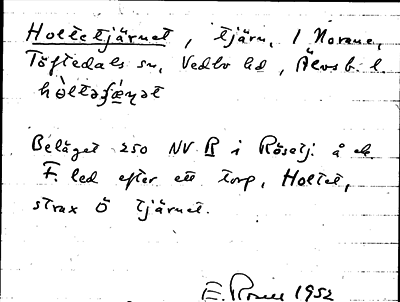 Holtetjärnet, tjärn, 1 Norane,
Töftedals sn, Vedbo hd, Älvsb. l.
Beläget 250 NV B i Rösetj. å ek.
F. led efter ett torp, Holtet,
strax Ö tjärnet.
1952